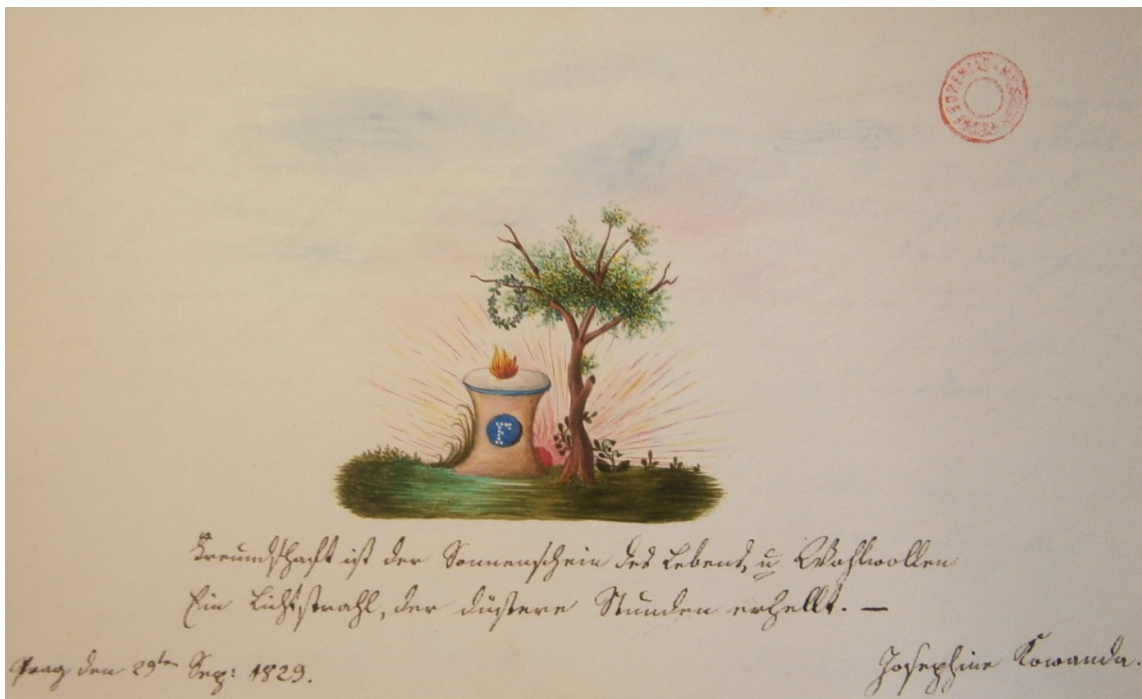 F
Freundschaft ist der Sonnenschein des Lebens, u Wohlwollen
Ein Lichtstrahl, der düstere Stunden erhellt. —
Prag den 29ten Sep: 1829.
Josephine Kowanda.